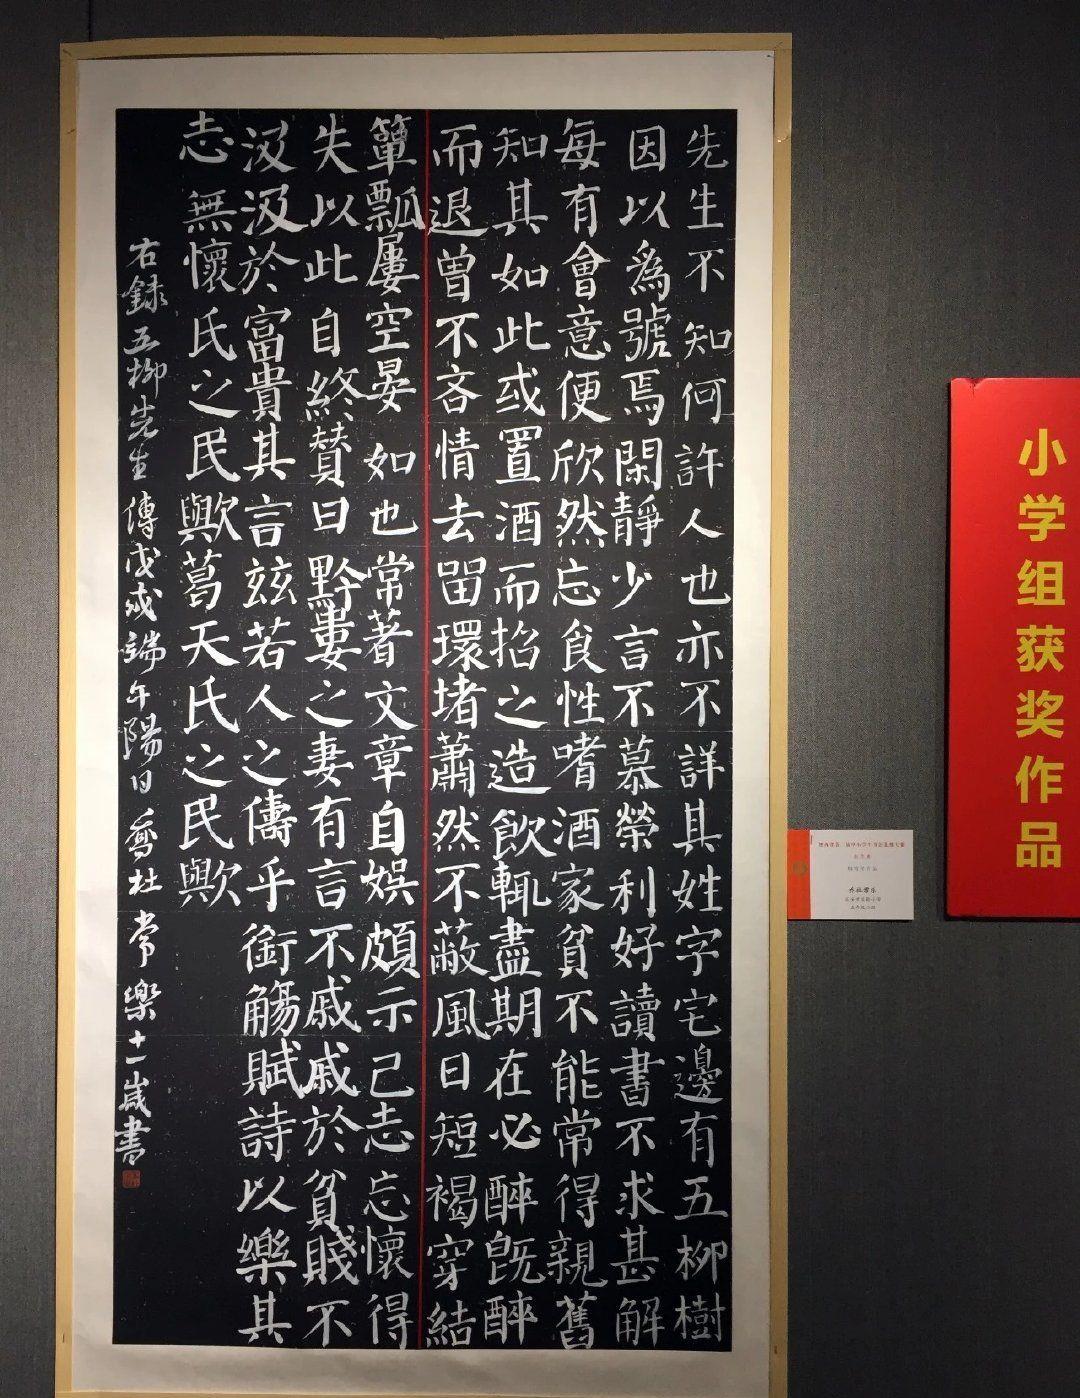 先生不知何許人也亦不詳其姓字宅邊有五柳樹
因以為號焉閑靜少言不慕榮利好讀書不求甚解
每有會意便欣然忘食性嗜酒家貧不能常得親舊
知其如此或置酒而招之造飲輒盡期在必醉既醉
而退曾不吝情去留環堵蕭然不蔽風日短褐穿結
簞瓢屢空晏如也常著文章自娛頗示己志忘懷得
失以此自終贊曰黔婁之妻有言不戚戚於貧賤不
汲汲於富貴其言玆若人之儔乎銜觴賦詩以樂其
志無懷氏之民歟葛天氏之民歟
右録五柳先生傳戊戌端午陽日喬杜常樂十一歲書
小学组获奖作品